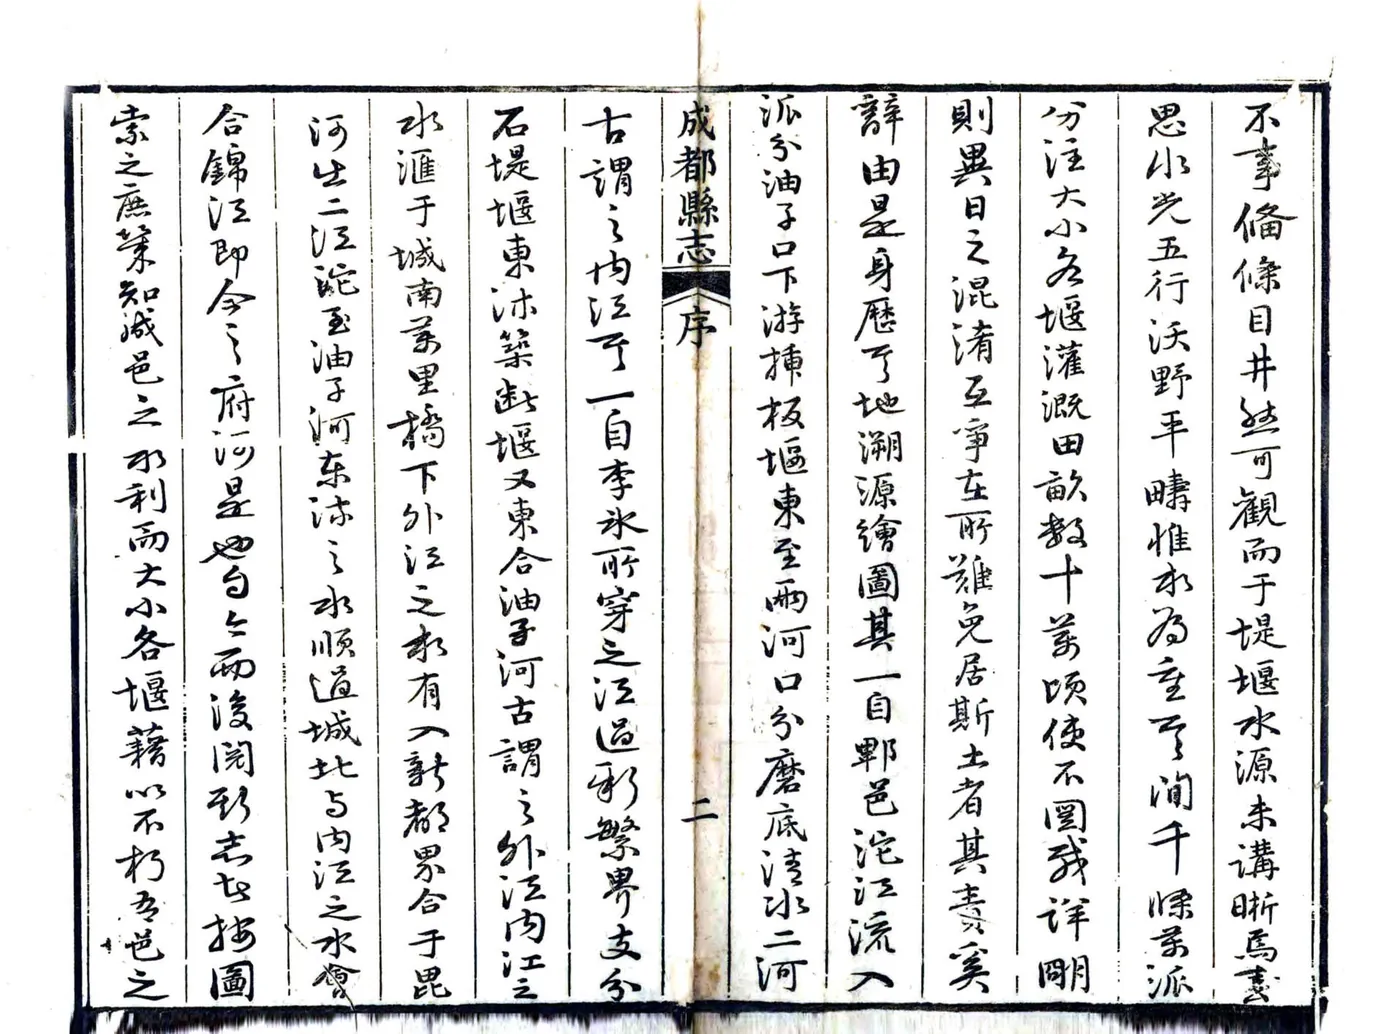 不事備條目井然可觀而于堤堰水源未講晰焉
思水光五行沃野平疇惟水為重耳澗千條萬派
分注大小各堰灌溉田畝數十萬頃使不圖我詳明
則異日之混淆互爭在所難免居斯土者其責奚
辭由是身歷其地溯源繪圖其一自郫邑沱江流入
派分油子口下游插板堰東至兩河口分磨底清水二河
成都縣志 序 二
古謂之内江耳一自李冰所穿之江過新繁界支分
石堤堰東流築斷堰又東合油子河古謂之外江内江之
水滙于城南萬里橋下外江之水有入新都界合于毘
河出二江沱至油子河東流之水順道城北与内江之水會
合錦江即今之府河是也自今而後閱斯志者按圖
索之庶幾知成邑之水利而大小各堰藉以不朽吾邑之